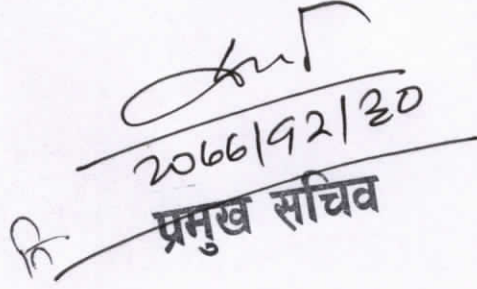 २०७७|१२|३०
प्रमुख सचिव